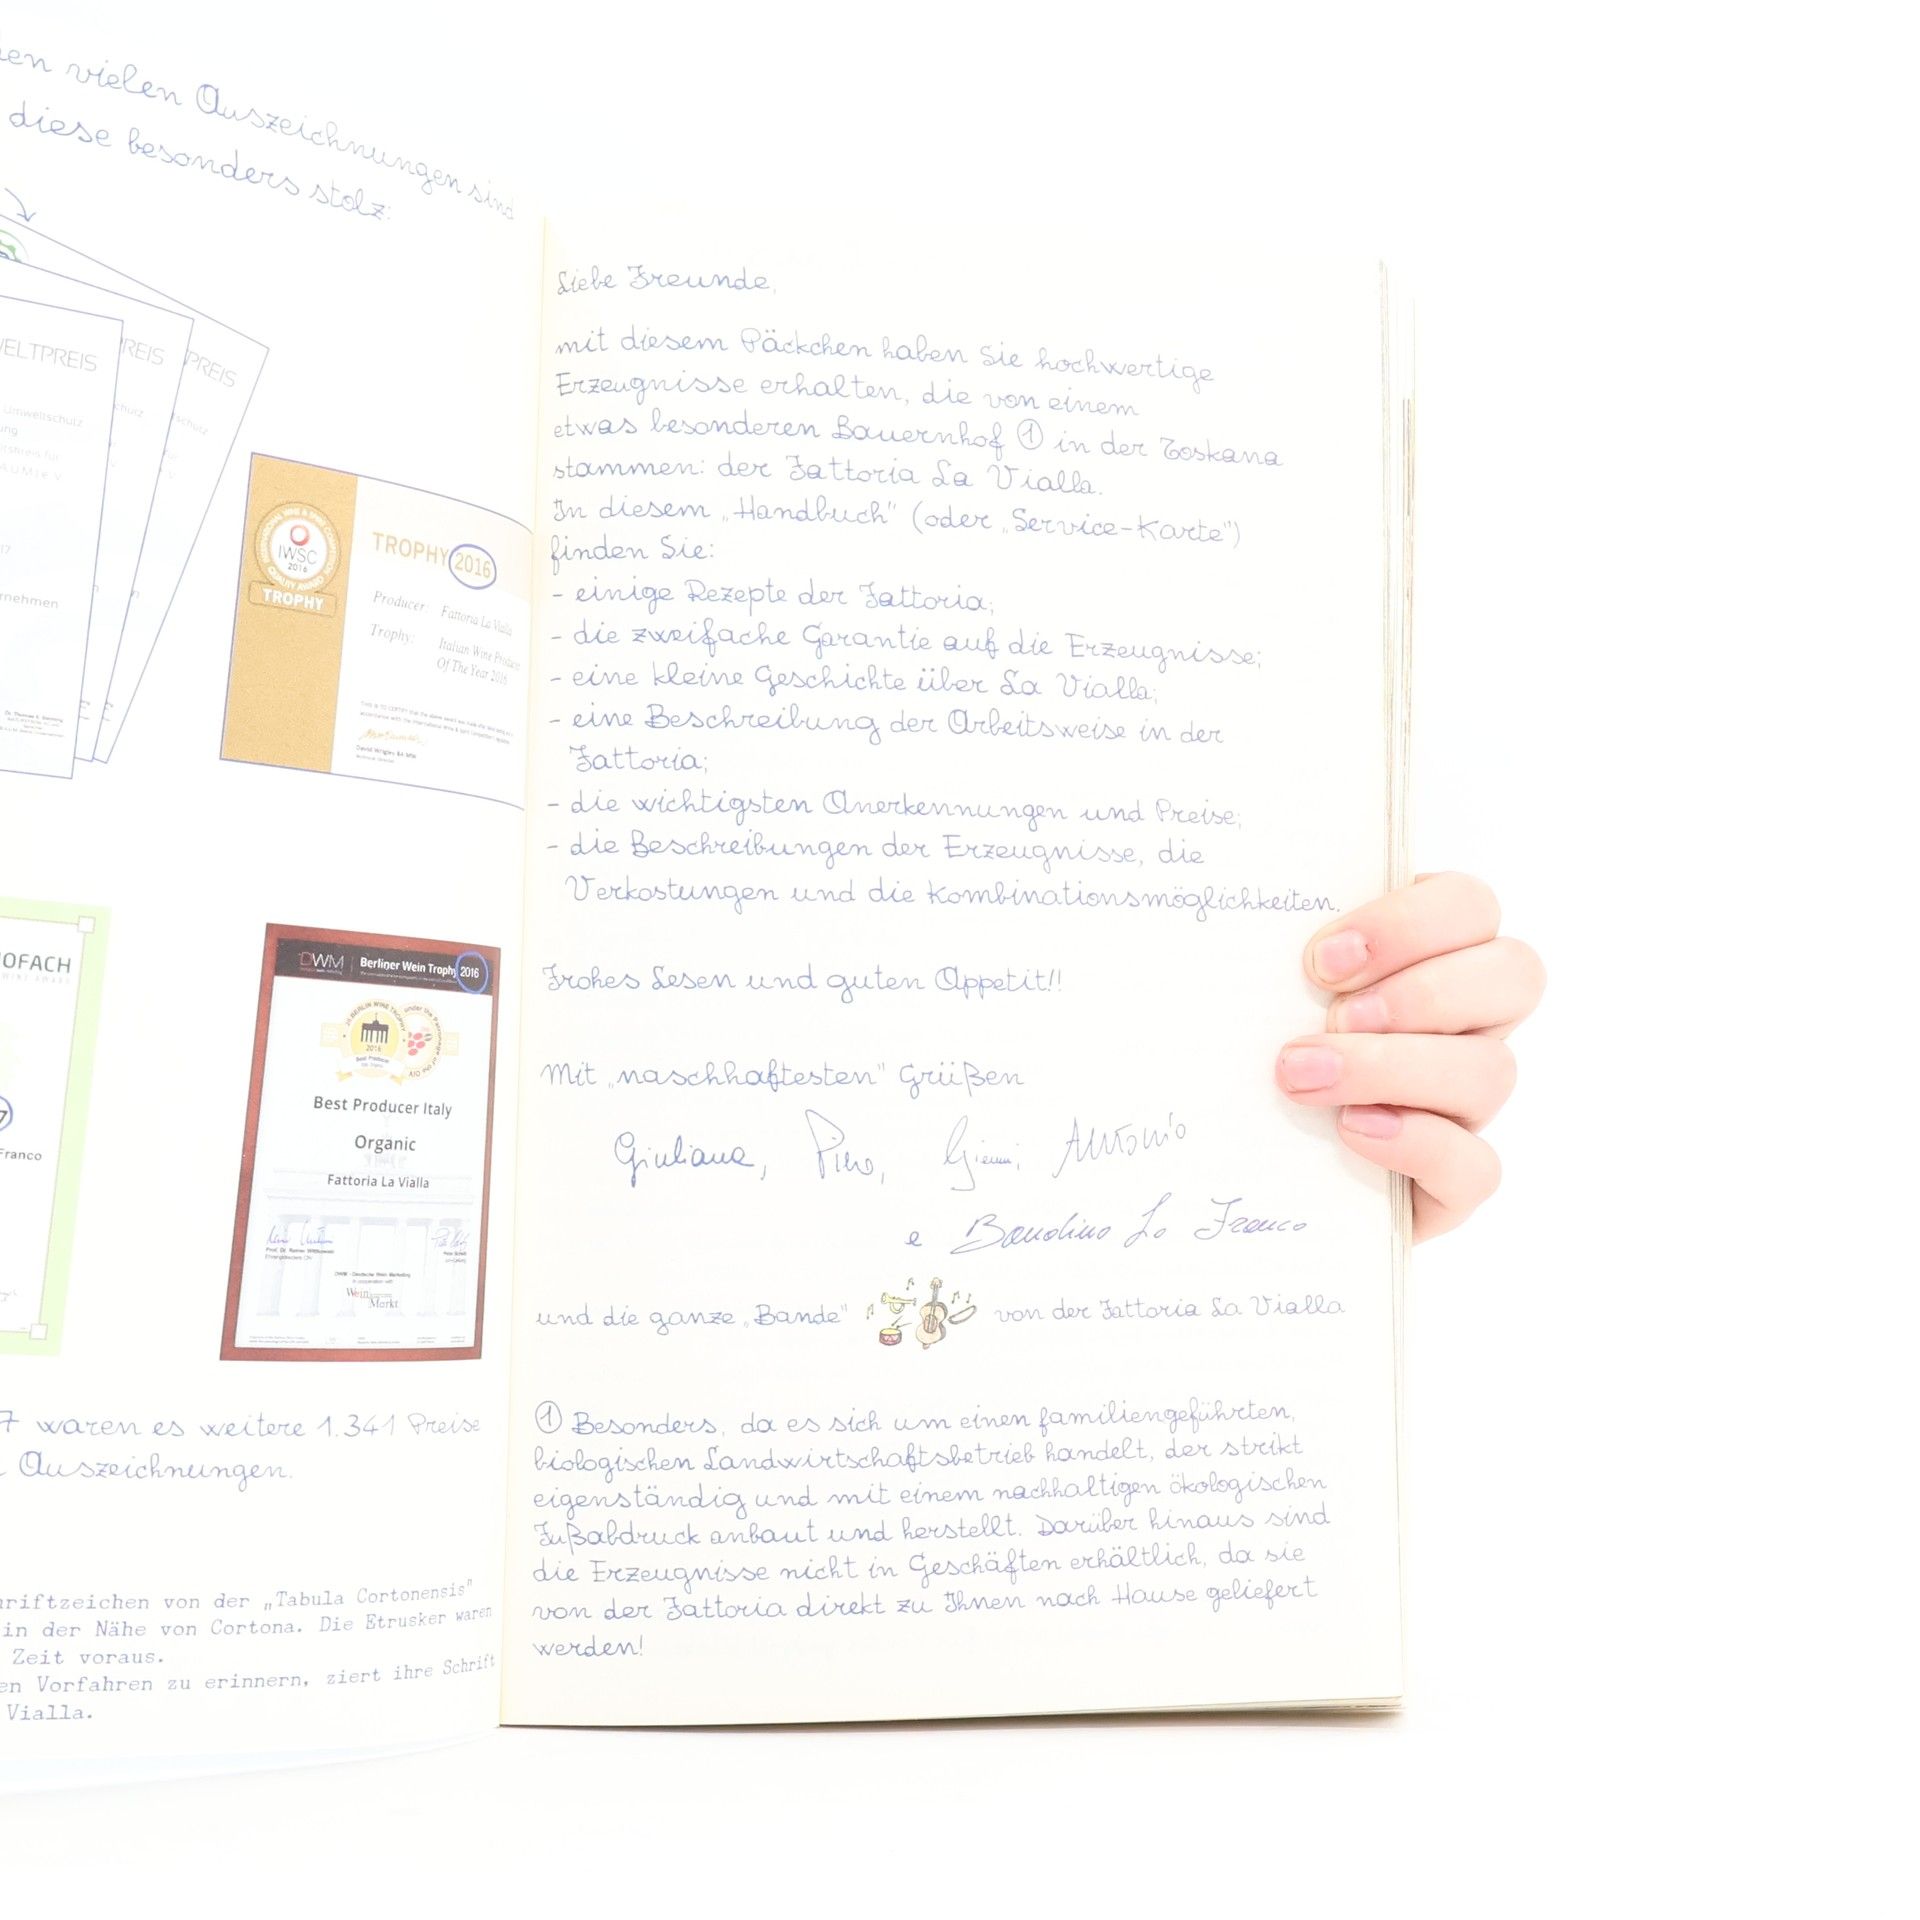 vielen Auszeichnungen sind
diese besonders stolz:
PREIS
PREIS
Umweltschutz
IWSC
2016
TROPHY
TROPHY 2016
Producer: Fattoria La Vialla
Trophy: Italian Wine Producer
Of The Year 2016
DWM Berliner Wein Trophy 2016
2016
Best Producer
Best Producer Italy
Organic
Fattoria La Vialla
DWM - Deutsche Wein Marketing
in cooperation with
Wein
Markt
Franco
7 waren es weitere 1.341 Preise
Auszeichnungen.
von der „Tabula Cortonensis"
in der Nähe von Cortona. Die Etrusker waren
Zeit voraus.
Vorfahren zu erinnern, ziert ihre Schrift
Vialla.
Liebe Freunde,
mit diesem Päckchen haben Sie hochwertige
Erzeugnisse erhalten, die von einem
etwas besonderen Bauernhof ① in der Toskana
stammen: der Fattoria La Vialla.
In diesem „Handbuch" (oder „Service-Karte")
finden Sie:
- einige Rezepte der Fattoria;
- die zweifache Garantie auf die Erzeugnisse;
- eine kleine Geschichte über La Vialla;
- eine Beschreibung der Arbeitsweise in der
Fattoria;
- die wichtigsten Anerkennungen und Preise;
- die Beschreibungen der Erzeugnisse, die
Verkostungen und die Kombinationsmöglichkeiten.
Frohes Lesen und guten Appetit!!
Mit „naschhaftesten" Grüßen
Giuliana, Piero, Gianni, Antonio
e Bandino Lo Franco
und die ganze „Bande" von der Fattoria La Vialla
① Besonders, da es sich um einen familiengeführten,
biologischen Landwirtschaftsbetrieb handelt, der strikt
eigenständig und mit einem nachhaltigen ökologischen
Fußabdruck anbaut und herstellt. Darüber hinaus sind
die Erzeugnisse nicht in Geschäften erhältlich, da sie
von der Fattoria direkt zu Ihnen nach Hause geliefert
werden!